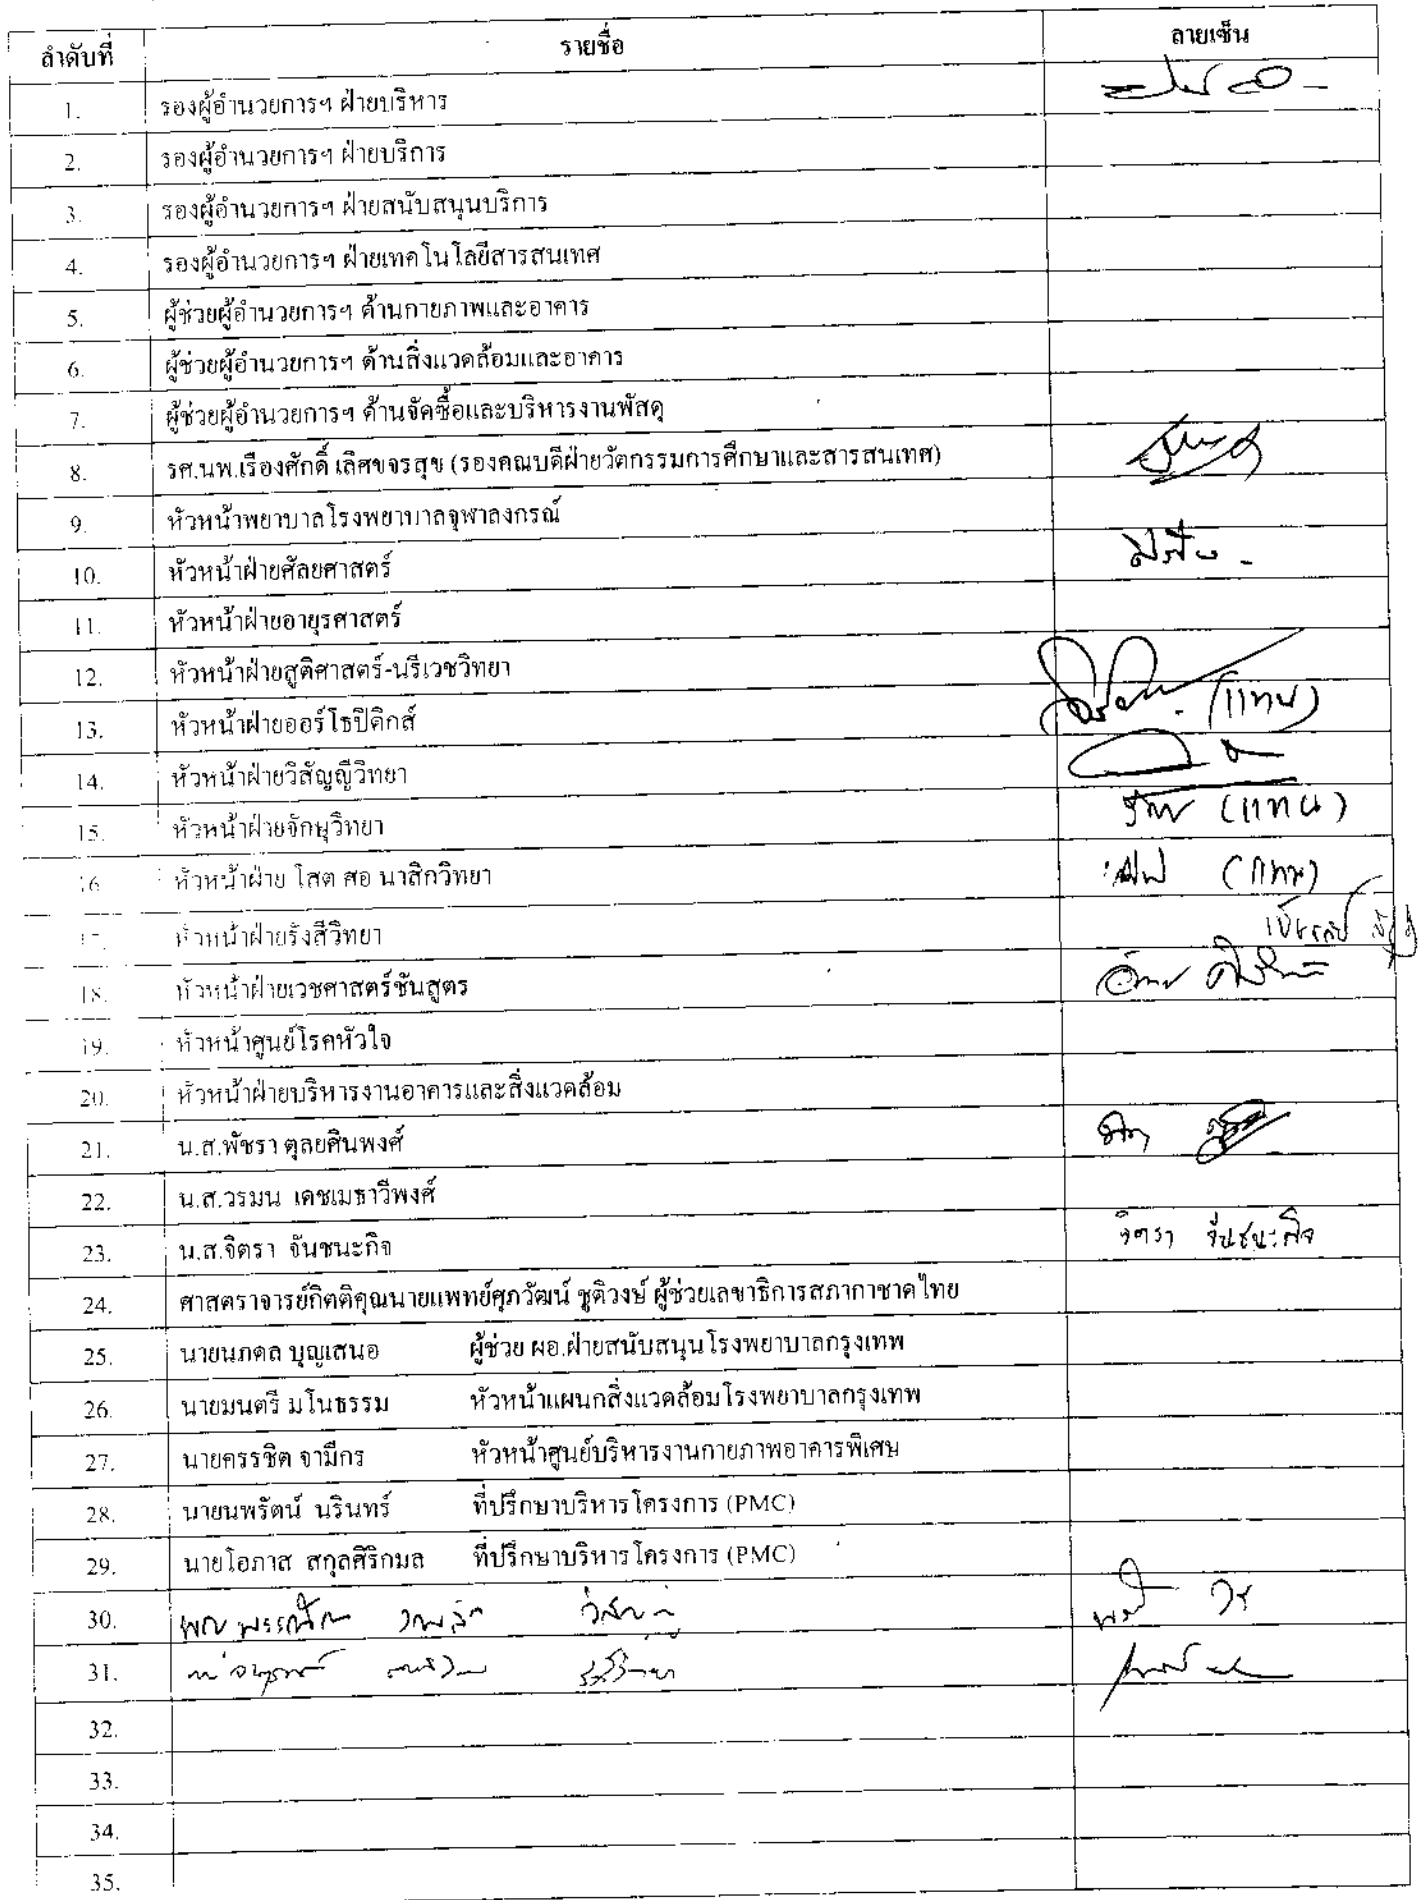 ลำดับที่ รายชื่อ ลายเซ็น
1. รองผู้อำนวยการฯ ฝ่ายบริหาร
2. รองผู้อำนวยการฯ ฝ่ายบริการ
3. รองผู้อำนวยการฯ ฝ่ายสนับสนุนบริการ
4. รองผู้อำนวยการฯ ฝ่ายเทคโนโลยีสารสนเทศ
5. ผู้ช่วยผู้อำนวยการฯ ด้านกายภาพและอาคาร
6. ผู้ช่วยผู้อำนวยการฯ ด้านสิ่งแวดล้อมและอาคาร
7. ผู้ช่วยผู้อำนวยการฯ ด้านจัดซื้อและบริหารงานพัสดุ
8. รศ.นพ.เรืองศักดิ์ เลิศขจรสุข (รองคณบดีฝ่ายวัตกรรมการศึกษาและสารสนเทศ)
9. หัวหน้าพยาบาลโรงพยาบาลจุฬาลงกรณ์
10. หัวหน้าฝ่ายศัลยศาสตร์
11. หัวหน้าฝ่ายอายุรศาสตร์
12. หัวหน้าฝ่ายสูติศาสตร์-นรีเวชวิทยา
13. หัวหน้าฝ่ายออร์โธปิดิกส์ (แทน)
14. หัวหน้าฝ่ายวิสัญญีวิทยา
15. หัวหน้าฝ่ายจักษุวิทยา (แทน)
16 หัวหน้าฝ่าย โสต ศอ นาสิกวิทยา (แทน)
17. หัวหน้าฝ่ายรังสีวิทยา
18. หัวหน้าฝ่ายเวชศาสตร์ชันสูตร
19. หัวหน้าศูนย์โรคหัวใจ
20. หัวหน้าฝ่ายบริหารงานอาคารและสิ่งแวดล้อม
21. น.ส.พัชรา ตุลยศินพงศ์
22. น.ส.วรมน เดชเมธาวีพงศ์
23. น.ส.จิตรา จันชนะกิจ จิตรา จันชนะกิจ
24. ศาสตราจารย์กิตติคุณนายแพทย์ศุภวัฒน์ ชุติวงษ์ ผู้ช่วยเลขาธิการสภากาชาดไทย
25. นายนภดล บุญเสนอ ผู้ช่วย ผอ.ฝ่ายสนับสนุนโรงพยาบาลกรุงเทพ
26. นายมนตรี มโนธรรม หัวหน้าแผนกสิ่งแวดล้อมโรงพยาบาลกรุงเทพ
27. นายครรชิต จามีกร หัวหน้าศูนย์บริหารงานกายภาพอาคารพิเศษ
28. นายนพรัตน์ นรินทร์ ที่ปรึกษาบริหารโครงการ (PMC)
29. นายโอภาส สกุลศิริกมล ที่ปรึกษาบริหารโครงการ (PMC)
30.
31.
32.
33.
34.
35.